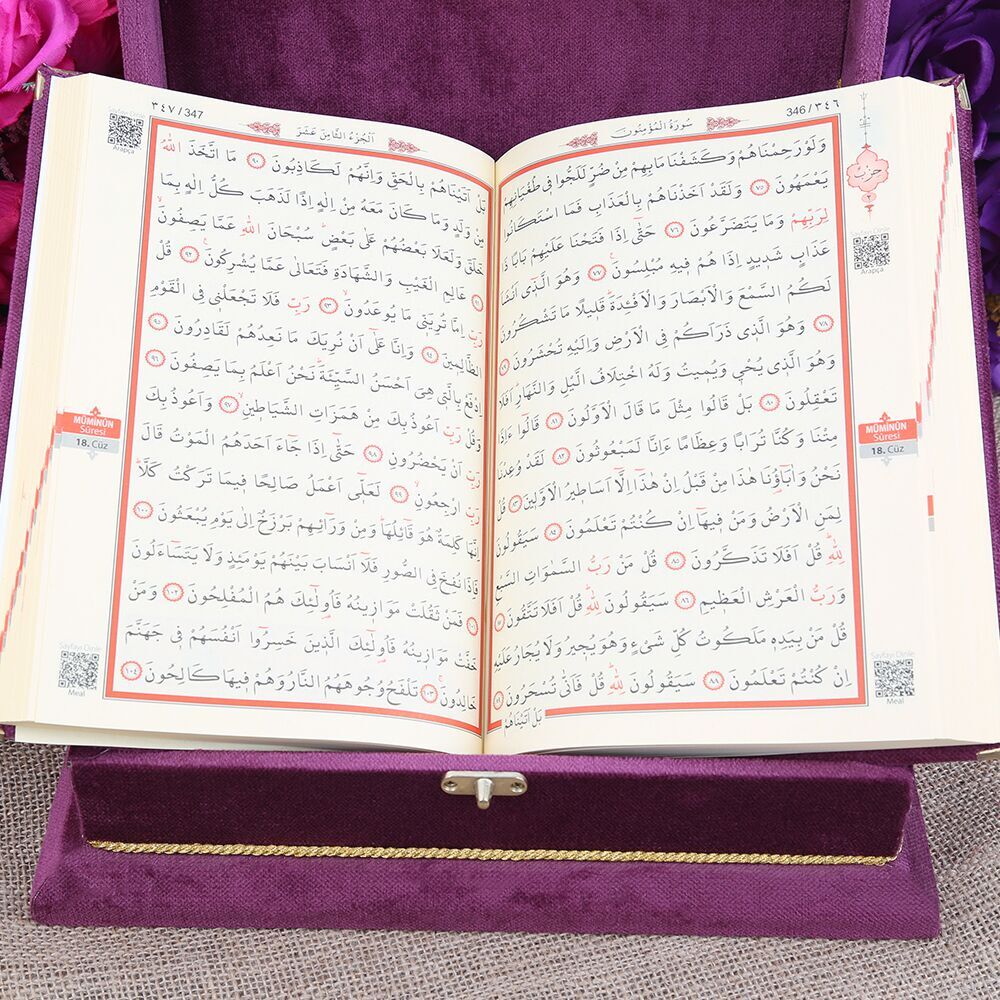 346 / ٣٤٦
سُورَةُ الْمُؤْمِنُونَ
وَلَوْ رَحِمْنَاهُمْ وَكَشَفْنَا مَا بِهِمْ مِنْ ضُرٍّ لَلَجُّوا فِى طُغْيَانِهِمْ
يَعْمَهُونَ ٧٥ وَلَقَدْ اَخَذْنَاهُمْ بِالْعَذَابِ فَمَا اسْتَكَانُوا
لِرَبِّهِمْ وَمَا يَتَضَرَّعُونَ ٧٦ حَتّٰٓى اِذَا فَتَحْنَا عَلَيْهِمْ بَابًا ذَا
عَذَابٍ شَدٖيدٍ اِذَا هُمْ فٖيهِ مُبْلِسُونَ ٧٧ وَهُوَ الَّذٖٓى اَنْشَاَ
لَكُمُ السَّمْعَ وَالْاَبْصَارَ وَالْاَفْـِٔدَةَ قَلٖيلًا مَا تَشْكُرُونَ
٧٨ وَهُوَ الَّذٖى ذَرَاَكُمْ فِى الْاَرْضِ وَاِلَيْهِ تُحْشَرُونَ ٧٩
وَهُوَ الَّذٖى يُحْيٖ وَيُمٖيتُ وَلَهُ اخْتِلَافُ الَّيْلِ وَالنَّهَارِ اَفَلَا
تَعْقِلُونَ ٨٠ بَلْ قَالُوا مِثْلَ مَا قَالَ الْاَوَّلُونَ ٨١ قَالُٓوا ءَاِذَا
مِتْنَا وَكُنَّا تُرَابًا وَعِظَامًا ءَاِنَّا لَمَبْعُوثُونَ ٨٢ لَقَدْ وُعِدْنَا
نَحْنُ وَاٰبَٓاؤُ۬نَا هٰذَا مِنْ قَبْلُ اِنْ هٰذَٓا اِلَّٓا اَسَاطٖيرُ الْاَوَّلٖينَ ٨٣ قُلْ
لِمَنِ الْاَرْضُ وَمَنْ فٖيهَٓا اِنْ كُنْتُمْ تَعْلَمُونَ ٨٤ سَيَقُولُونَ
لِلّٰهِ قُلْ اَفَلَا تَذَكَّرُونَ ٨٥ قُلْ مَنْ رَبُّ السَّمٰوَاتِ السَّبْعِ
وَرَبُّ الْعَرْشِ الْعَظٖيمِ ٨٦ سَيَقُولُونَ لِلّٰهِ قُلْ اَفَلَا تَتَّقُونَ ٨٧
قُلْ مَنْ بِيَدِهٖ مَلَكُوتُ كُلِّ شَیْءٍ وَهُوَ يُجٖيرُ وَلَا يُجَارُ عَلَيْهِ
اِنْ كُنْتُمْ تَعْلَمُونَ ٨٨ سَيَقُولُونَ لِلّٰهِ قُلْ فَاَنّٰى تُسْحَرُونَ ٨٩
بَلْ اَتَيْنَاهُمْ
حزب
٢
Arapça
MÜMİNÛN
Sûresi
18. Cüz
Sayfayı Dinle
Meal
٣٤٧ / 347
اَلْجُزْءُ الثَّامِنَ عَشَرَ
بَلْ اَتَيْنَاهُمْ بِالْحَقِّ وَاِنَّهُمْ لَكَاذِبُونَ ٩٠ مَا اتَّخَذَ اللّٰهُ
مِنْ وَلَدٍ وَمَا كَانَ مَعَهُ مِنْ اِلٰهٍ اِذًا لَذَهَبَ كُلُّ اِلٰهٍ بِمَا
خَلَقَ وَلَعَلَا بَعْضُهُمْ عَلٰى بَعْضٍ سُبْحَانَ اللّٰهِ عَمَّا يَصِفُونَ
٩١ عَالِمِ الْغَيْبِ وَالشَّهَادَةِ فَتَعَالٰى عَمَّا يُشْرِكُونَ ٩٢ قُلْ
رَبِّ اِمَّا تُرِيَنّٖى مَا يُوعَدُونَ ٩٣ رَبِّ فَلَا تَجْعَلْنٖى فِى الْقَوْمِ
الظَّالِمٖينَ ٩٤ وَاِنَّا عَلٰٓى اَنْ نُرِيَكَ مَا نَعِدُهُمْ لَقَادِرُونَ ٩٥
اِدْفَعْ بِالَّتٖى هِىَ اَحْسَنُ السَّيِّئَةَ نَحْنُ اَعْلَمُ بِمَا يَصِفُونَ ٩٦
وَقُلْ رَبِّ اَعُوذُ بِكَ مِنْ هَمَزَاتِ الشَّيَاطٖينِ ٩٧ وَاَعُوذُ بِكَ
رَبِّ اَنْ يَحْضُرُونِ ٩٨ حَتّٰٓى اِذَا جَٓاءَ اَحَدَهُمُ الْمَوْتُ قَالَ
رَبِّ ارْجِعُونِ ٩٩ لَعَلّٖٓى اَعْمَلُ صَالِحًا فٖيمَا تَرَكْتُ كَلَّا
اِنَّهَا كَلِمَةٌ هُوَ قَٓائِلُهَا وَمِنْ وَرَٓائِهِمْ بَرْزَخٌ اِلٰى يَوْمِ يُبْعَثُونَ ١٠٠
فَاِذَا نُفِخَ فِى الصُّورِ فَلَٓا اَنْسَابَ بَيْنَهُمْ يَوْمَئِذٍ وَلَا يَتَسَٓاءَلُونَ
١٠١ فَمَنْ ثَقُلَتْ مَوَازٖينُهُ فَاُولٰٓئِكَ هُمُ الْمُفْلِحُونَ ١٠٢ وَمَنْ
خَفَّتْ مَوَازٖينُهُ فَاُولٰٓئِكَ الَّذٖينَ خَسِرُٓوا اَنْفُسَهُمْ فٖى جَهَنَّمَ
خَالِدُونَ ١٠٣ تَلْفَحُ وُجُوهَهُمُ النَّارُ وَهُمْ فٖيهَا كَالِحُونَ ١٠٤
Sayfayı Dinle
Arapça
MÜMİNÛN
Sûresi
18. Cüz
Sayfayı Dinle
Meal